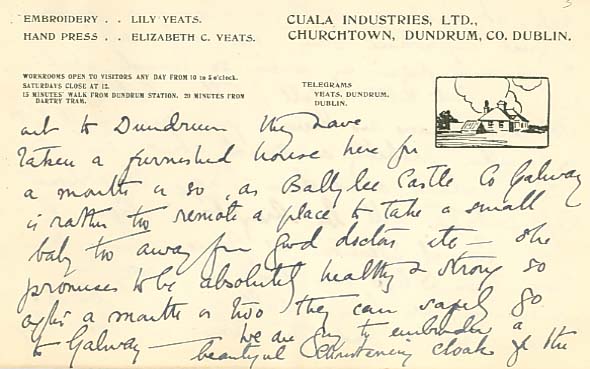 EMBROIDERY . . LILY YEATS.
HAND PRESS . . ELIZABETH C. YEATS.
CUALA INDUSTRIES, LTD.,
CHURCHTOWN, DUNDRUM, CO. DUBLIN.
WORKROOMS OPEN TO VISITORS ANY DAY FROM 10 to 5 o'clock.
SATURDAYS CLOSE AT 12.
15 MINUTES' WALK FROM DUNDRUM STATION. 20 MINUTES FROM
DARTRY TRAM.
TELEGRAMS
YEATS, DUNDRUM,
DUBLIN.
out to Dundrum they have
taken a furnished house here for
a month or so, as Ballylee Castle Co Galway
is rather too remote a place to take a small
baby to away from good doctors etc — she
promises to be absolutely healthy & strong so
after a month or two they can safely go
to Galway — we are going to embroider a
beautiful christening cloak for the